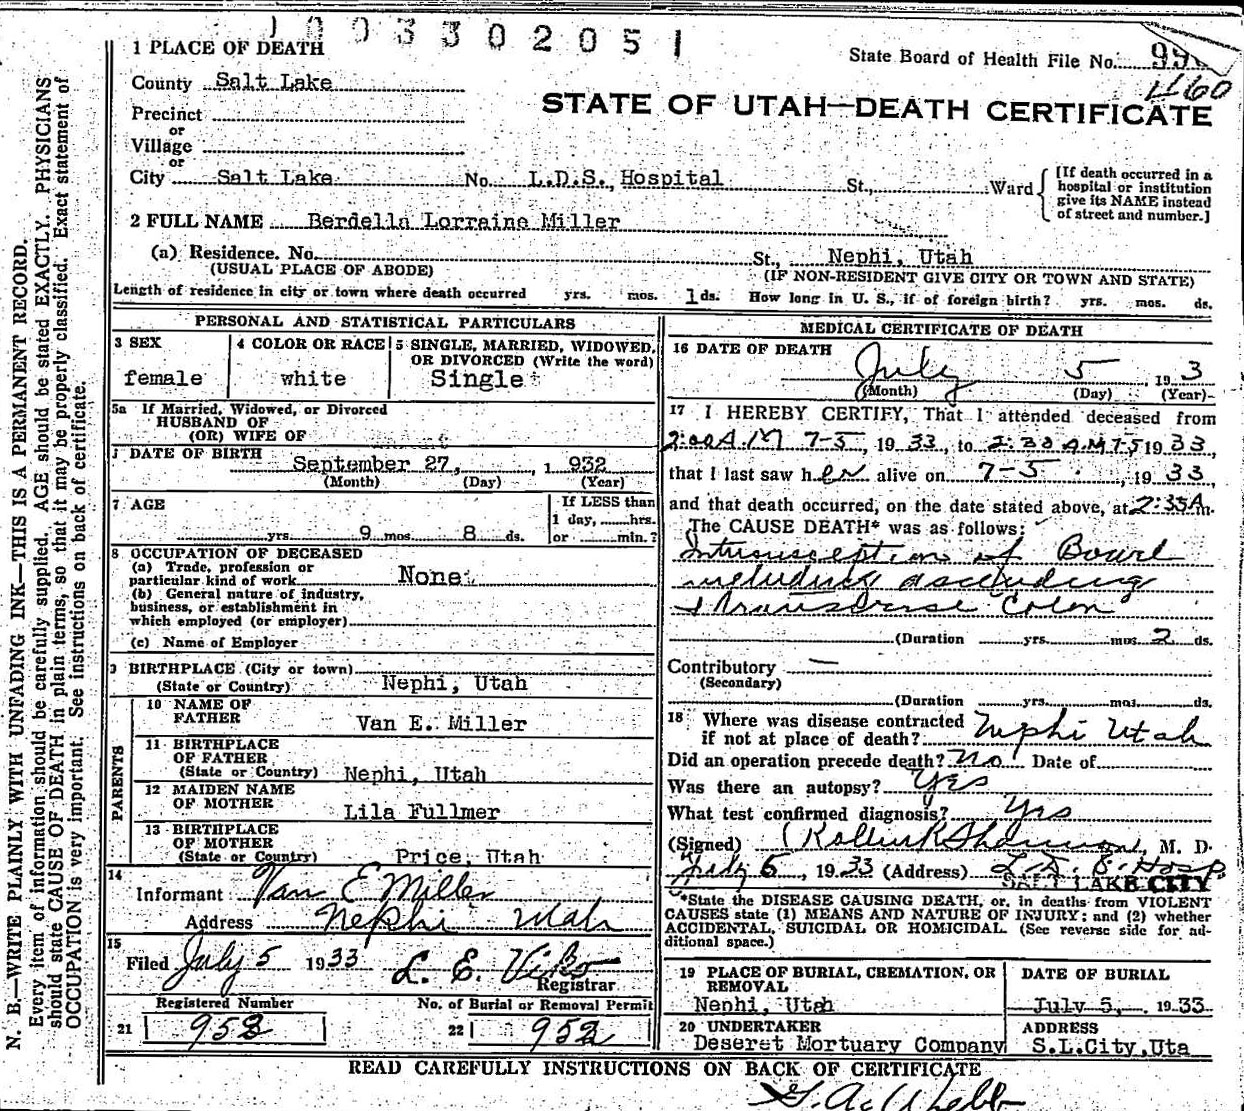 1003302051
1 PLACE OF DEATH
State Board of Health File No.
County Salt Lake
1460
STATE OF UTAH—DEATH CERTIFICATE
Precinct
or
Village
or
City Salt Lake No. L.D.S. Hospital St., Ward
[If death occurred in a
hospital or institution
give its NAME instead
of street and number.]
2 FULL NAME Berdella Lorraine Miller
(a) Residence. No. St., Nephi, Utah
(USUAL PLACE OF ABODE) (IF NON-RESIDENT GIVE CITY OR TOWN AND STATE)
Length of residence in city or town where death occurred yrs. mos. 1 ds. How long in U. S., if of foreign birth? yrs. mos. ds.
PERSONAL AND STATISTICAL PARTICULARS
3 SEX
female
4 COLOR OR RACE
white
5 SINGLE, MARRIED, WIDOWED,
OR DIVORCED (Write the word)
Single
5a If Married, Widowed, or Divorced
HUSBAND OF
(OR) WIFE OF
DATE OF BIRTH
September 27, 1 932
(Month) (Day) (Year)
7 AGE
yrs. 9 mos. 8 ds.
If LESS than
1 day, hrs.
or min.?
8 OCCUPATION OF DECEASED
(a) Trade, profession or
particular kind of work None
(b) General nature of industry,
business, or establishment in
which employed (or employer)
(c) Name of Employer
9 BIRTHPLACE (City or town)
(State or Country) Nephi, Utah
PARENTS
10 NAME OF
FATHER Van E. Miller
11 BIRTHPLACE
OF FATHER
(State or Country) Nephi, Utah
12 MAIDEN NAME
OF MOTHER Lila Fullmer
13 BIRTHPLACE
OF MOTHER
(State or Country) Price, Utah
14
Informant Van E Miller
Address Nephi Utah
15
Filed July 5 1933 L. E. Viko
Registrar
Registered Number No. of Burial or Removal Permit
21 952 22 952
MEDICAL CERTIFICATE OF DEATH
16 DATE OF DEATH
July 5, 193 3
(Month) (Day) (Year)
17 I HEREBY CERTIFY, That I attended deceased from
2:00 A.M 7-5, 1933, to 2:30 A.M 7-5 1933,
that I last saw her alive on 7-5, 1933,
and that death occurred, on the date stated above, at 2:35A m.
The CAUSE DEATH* was as follows:
Intususception of Bowel
including ascending
+ transverse Colon
(Duration yrs. mos. 2 ds.
Contributory —
(Secondary)
(Duration yrs. mos. ds.
18 Where was disease contracted
if not at place of death? Nephi Utah
Did an operation precede death? No Date of
Was there an autopsy? Yes
What test confirmed diagnosis? Yes
(Signed) , M. D.
July 5, 1933 (Address) L. D. S. Hosp.
SALT LAKE CITY
*State the DISEASE CAUSING DEATH, or, in deaths from VIOLENT
CAUSES state (1) MEANS AND NATURE OF INJURY; and (2) whether
ACCIDENTAL, SUICIDAL OR HOMICIDAL. (See reverse side for ad-
ditional space.)
19 PLACE OF BURIAL, CREMATION, OR
REMOVAL
Nephi, Utah
DATE OF BURIAL
July 5, 1933
20 UNDERTAKER
Deseret Mortuary Company
ADDRESS
S.L.City,Uta
READ CAREFULLY INSTRUCTIONS ON BACK OF CERTIFICATE
N. B.—WRITE PLAINLY WITH UNFADING INK—THIS IS A PERMANENT RECORD.
Every item of information should be carefully supplied. AGE should be stated EXACTLY. PHYSICIANS
should state CAUSE OF DEATH in plain terms, so that it may be properly classified. Exact statement of
OCCUPATION is very important. See instructions on back of certificate.